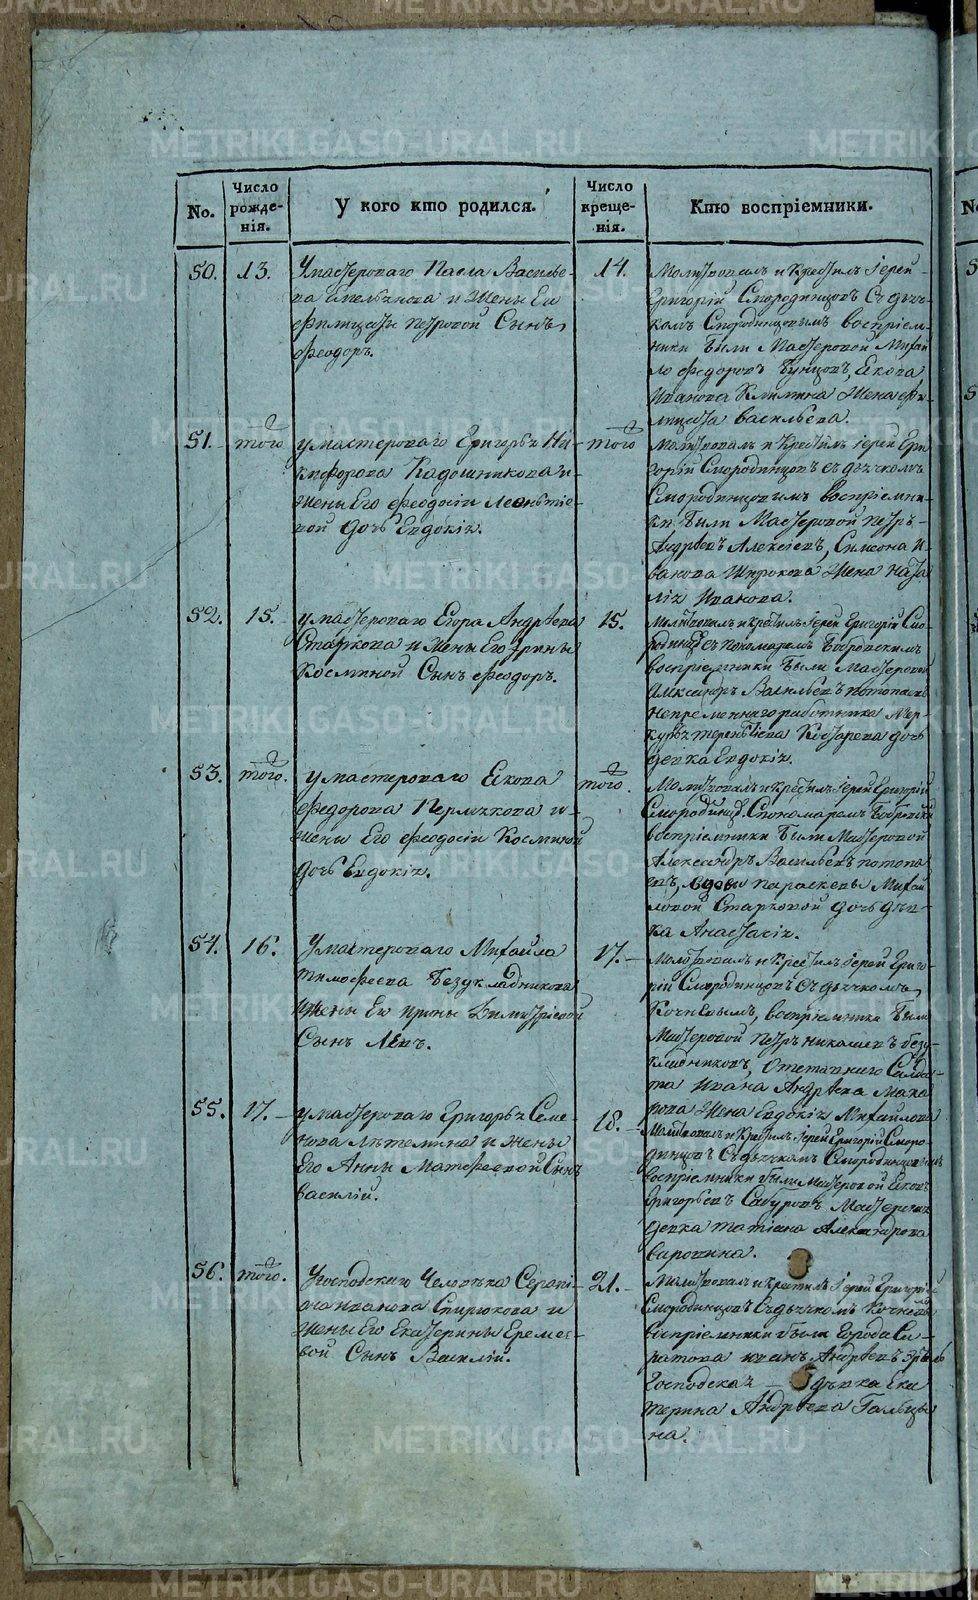 No.
Число рожде-нія.
У кого кто родился.
Число креще-нія.
Кто воспріемники.
50.
13.
Умастероваго Павла Василье-
ва и жены Его
Филицаты Петровой Сынъ
Феодоръ.
14.
Молитвовалъ и Крестилъ Іерей
Григорій Смородинцовъ Съ дьяч-
комъ Смородинцовымъ воспріем-
ники были Мастеровой Михай
ло Федоровъ Бунцовъ, Екова
Иванова Климина Жена Фи-
лицата Васильева.
51.
того
умастероваго Григорья Ни-
кифорова Кадошникова и
жены Его Феодосіи Леонтіе-
вой дочь Евдокія.
того
Молитвовалъ и Крестилъ Іерей Гри
горій Смородинцовъ съ дьячкомъ
Смородинцовымъ Воспріемни-
ки были Мастеровой Петръ
Андреевъ Алексіевъ, Симеона И-
ванова Широкова Жена Ната
лія Иванова.
52.
15.
умастероваго Егора Андрѣева
Старкова и Жены Его Ирины
Косминой Сынъ Феодоръ.
15.
Молитвовалъ и Крестилъ Іерей Григорій Смо-
родинц съ пономаремъ Бобровскимъ
воспріемники были Мастеровой
Александръ Васильевъ Потопаевъ
Непременнаго работника Мер-
курья Терентіева Косарева дочь
девка Евдокія.
53.
того.
умастероваго Екова
Федорова Пермякова и
жены Его Феодосіи Косминой
дочь Евдокія.
того.
Молитвовалъ и Крестилъ Іерей Григорій
Смородинц. Спономаремъ Бобровским
воспріемники были Мастеровой
Александръ Васильевъ Потопа
евъ, вдовы Параскевы Михай
ловой Старковой дочь дев-
ка Анастасія.
54.
16.
Умастероваго Михайла
Тимофеева Бездукладникова
и жены Ево Ирины Димитріевой
Сынъ Левъ.
17.
Молитвовалъ и Крестилъ Іерей Григо-
рій Смородинцовъ Съ дьячкомъ
Кочневымъ, воспріемники были
Мастеровой Петръ Николаевъ безу-
кладниковъ, Отставнаго Солда-
та Ивана Андрѣева Мака
рова Жена Евдокія Михайлова
55.
17.
умастероваго Григорья Семе-
нова Лѣтемина и жены
Его Анны Матфеевой Сынъ
Василій.
18.
Молитвовалъ и Крестилъ Іерей Григорій Сморо-
динцовъ Съ дьячкомъ Смородинцовымъ
воспріемники были Мастеровой Яковъ
Григорьевъ Сабуровъ, Мастерская
девка Татіана Александрова
Сыропина.
56.
того.
Угосподскаго Человѣка Серапі
она Иванова Спирюкова и
Жены Его Екатерины Еремее-
вой Сынъ Василій.
21.
Молитвовалъ и крестилъ Іерей Григорій
Смородинцовъ Съ дьячкомъ Кочневы
воспріемники были Города Са-
ратова Иванъ Андрѣевъ
Господская девка Ека
терина Андрѣева Гальцы
на.
METRIKI.GASO-URAL.RU